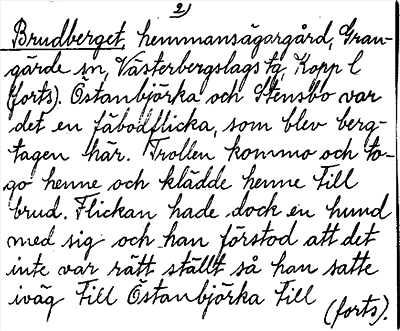 2)
Brudberget, hemmansägargård, Gran-
gärde sn, Västerbergslags tg, Kopp l
(forts). Östanbjörka och Stensbo var
det en fäbodflicka, som blev berg-
tagen här. Trollen kommo och to-
go henne och klädde henne till
brud. Flickan hade dock en hund
med sig och han förstod att det
inte var rätt ställt så han satte
iväg till Östanbjörka till
(forts).